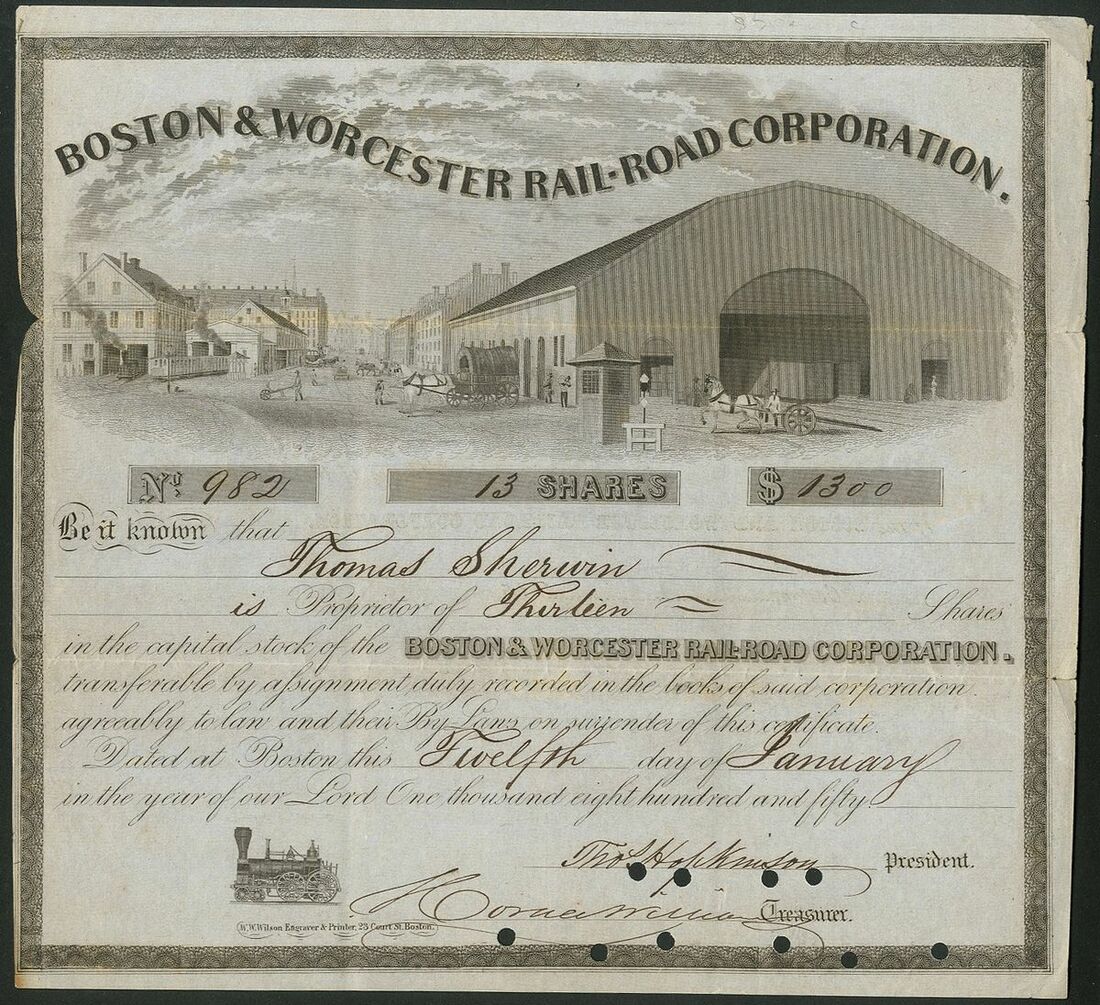 BOSTON & WORCESTER RAIL-ROAD CORPORATION.
No. 982
13 SHARES
$ 1300
Be it known that
Thomas Sherwin
is Proprietor of Thirteen Shares
in the capital stock of the BOSTON & WORCESTER RAIL-ROAD CORPORATION.
transferable by assignment duly recorded in the books of said corporation
agreeably to law and their By Laws on surrender of this certificate.
Dated at Boston this Twelfth day of January
in the year of our Lord One thousand eight hundred and fifty.
Thos Hopkinson President.
Treasurer.
W.W.Wilson Engraver & Printer, 23 Court St. Boston.